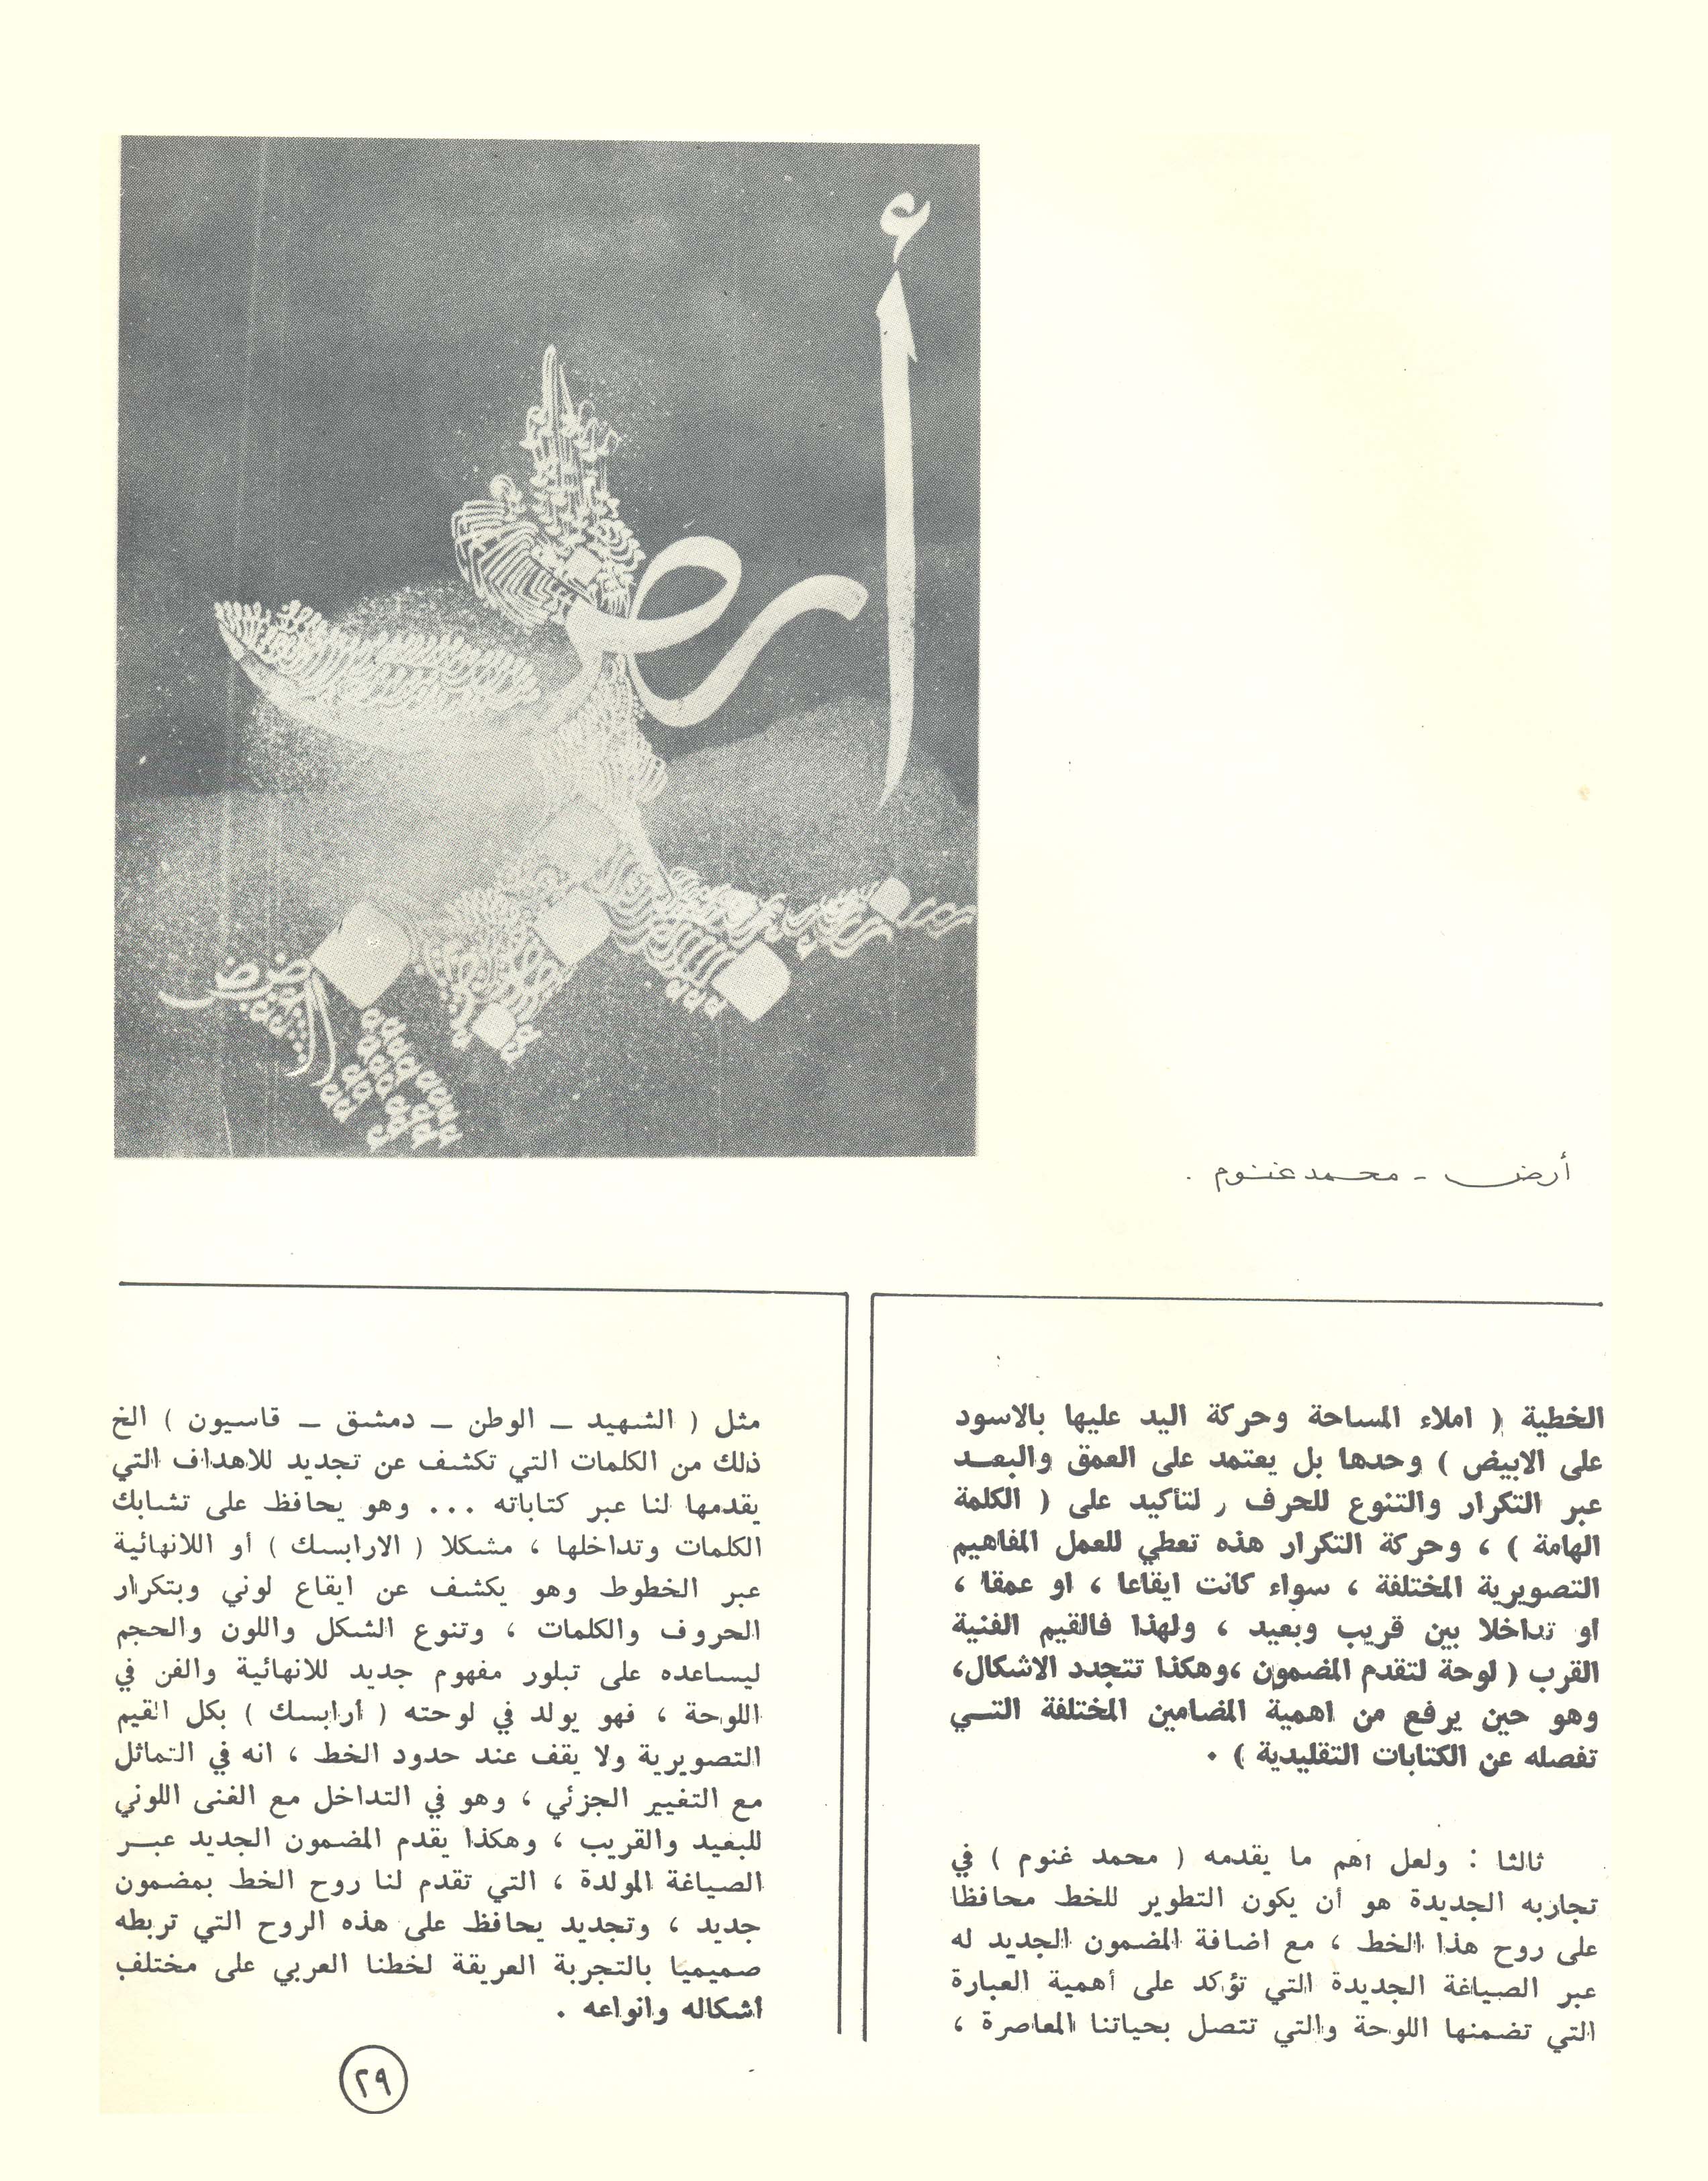 أرض
أرض - محمد غنوم .
الخطية ( املاء المساحة وحركة اليد عليها بالاسود
على الابيض ) وحدها بل يعتمد على العمق والبعـد
عبر التكرار والتنوع للحرف ر لتأكيد على ( الكلمة
الهامة ) ، وحركة التكرار هذه تعطي للعمل المفاهيم
التصويرية المختلفة ، سواء كانت ايقاعا ، او عمقا ،
او تداخلا بين قريب وبعيد ، ولهذا فالقيم الفنية
القرب ( لوحة لتقدم المضمون ،وهكذا تتجدد الاشكال،
وهو حين يرفع من اهمية المضامين المختلفة التـي
تفصله عن الكتابات التقليدية ) .
ثالثا : ولعل أهم ما يقدمه ( محمد غنوم ) في
تجاربه الجديدة هو أن يكون التطوير للخط محافظا
على روح هذا الخط ، مع اضافة المضمون الجديد له
عبر الصياغة الجديدة التي تؤكد على أهمية العبارة
التي تضمنها اللوحة والتي تتصل بحياتنا المعاصرة ،
مثل ( الشهيد - الوطن - دمشق - قاسيون ) الخ
ذلك من الكلمات التي تكشف عن تجديد للاهداف التي
يقدمها لنا عبر كتاباته ... وهو يحافظ على تشابك
الكلمات وتداخلها ، مشكلا ( الارابسك ) أو اللانهائية
عبر الخطوط وهو يكشف عن ايقاع لوني وبتكرار
الحروف والكلمات ، وتنوع الشكل واللون والحجم
ليساعده على تبلور مفهوم جديد للانهائية والفن في
اللوحة ، فهو يولد في لوحته ( أرابسك ) بكل القيم
التصويرية ولا يقف عند حدود الخط ، انه في التماثل
مع التغيير الجزئي ، وهو في التداخل مع الغنى اللوني
للبعيد والقريب ، وهكذا يقدم المضمون الجديد عبـر
الصياغة المولدة ، التي تقدم لنا روح الخط بمضمون
جديد ، وتجديد يحافظ على هذه الروح التي تربطه
صميميا بالتجربة العريقة لخطنا العربي على مختلف
أشكاله وانواعه .
٢٩